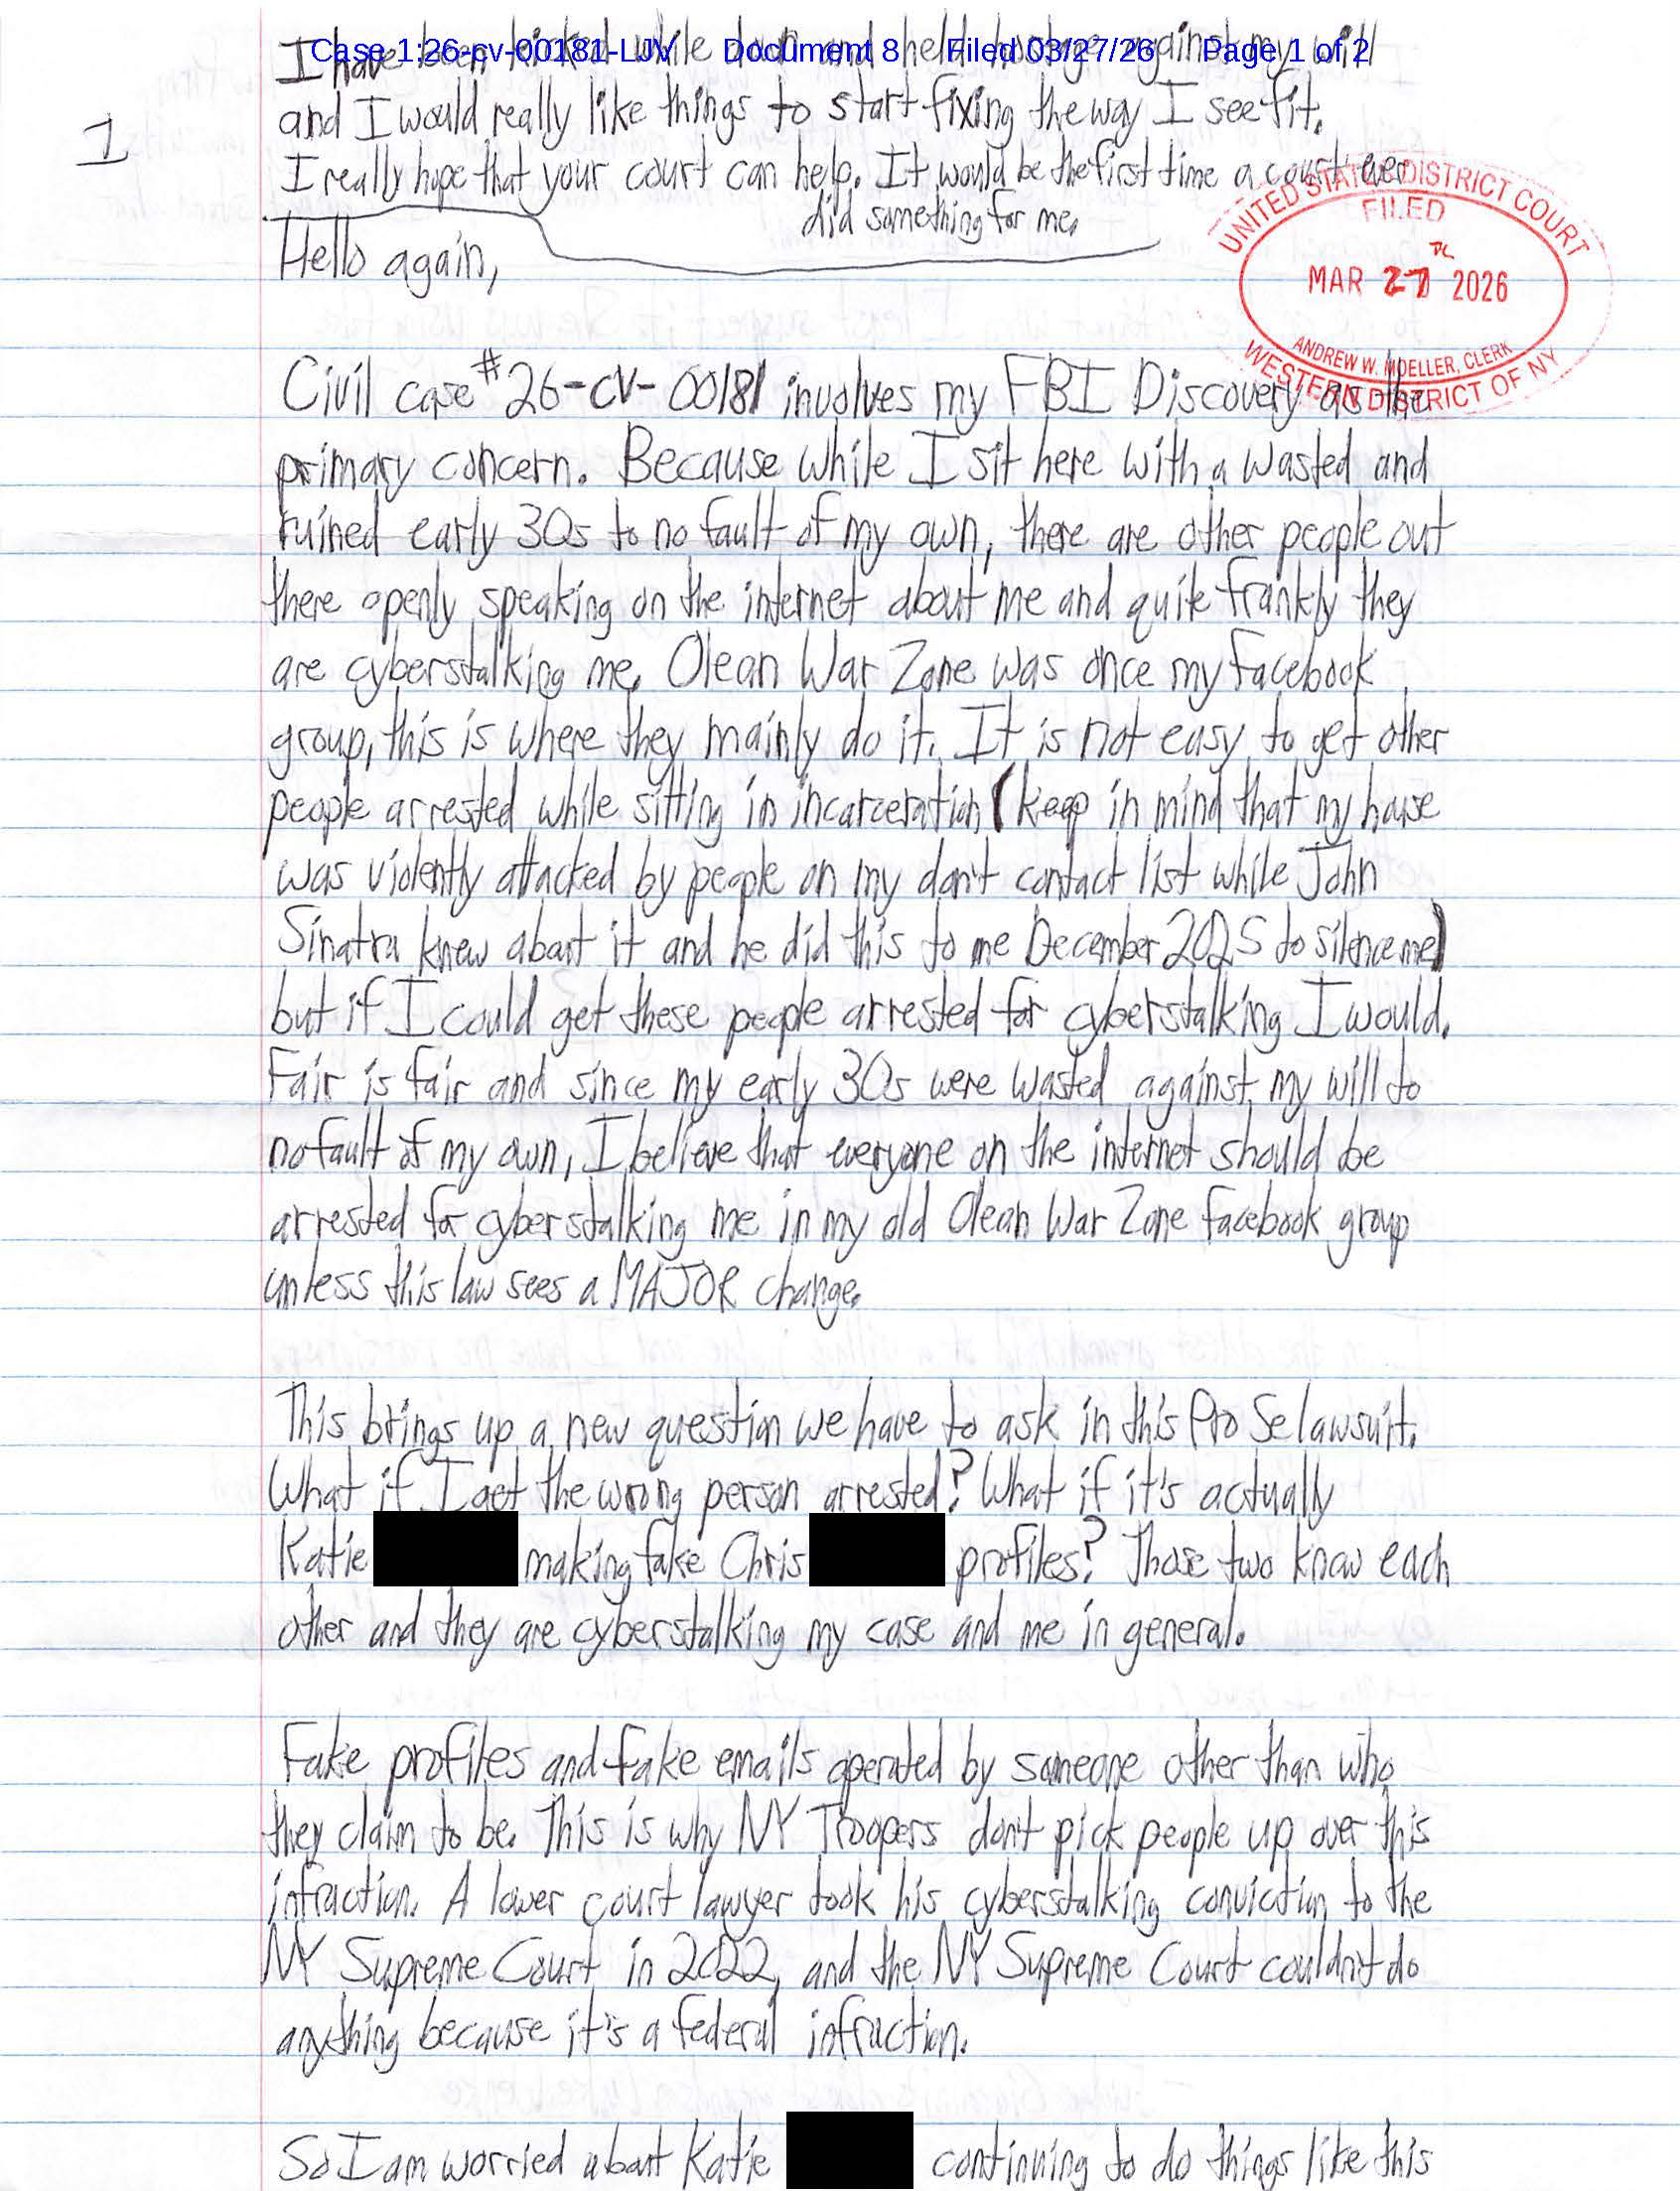 Case 1:26-cv-00181-LJV Document 8 Filed 03/27/26 Page 1 of 2
I have been kicked while down and held hostage against my will
and I would really like things to start fixing the way I see fit.
1
I really hope that your court can help. It would be the first time a court ever
did something for me.
UNITED STATES DISTRICT COURT
FILED
MAR 27 2026
ANDREW W. MOELLER, CLERK
WESTERN DISTRICT OF NY
Hello again,
Civil case #26-cv-00181 involves my FBI Discovery as the
primary concern. Because while I sit here with a wasted and
ruined early 30s to no fault of my own, there are other people out
there openly speaking on the internet about me and quite frankly they
are cyberstalking me. Olean War Zone was once my Facebook
group, this is where they mainly do it. It is not easy to get other
people arrested while sitting in incarceration (keep in mind that my house
was violently attacked by people on my don't contact list while John
Sinatra knew about it and he did this to me December 2025 to silence me)
but if I could get these people arrested for cyberstalking I would.
Fair is fair and since my early 30s were wasted against my will to
no fault of my own, I believe that everyone on the internet should be
arrested for cyberstalking me in my old Olean War Zone Facebook group
unless this law sees a MAJOR change.
This brings up a new question we have to ask in this Pro Se lawsuit.
What if I get the wrong person arrested? What if it's actually
Katie making fake Chris profiles? Those two know each
other and they are cyberstalking my case and me in general.
Fake profiles and fake emails operated by someone other than who
they claim to be. This is why NY Troopers don't pick people up over this
infraction. A lower court lawyer took his cyberstalking conviction to the
NY Supreme Court in 2022, and the NY Supreme Court couldn't do
anything because it's a federal infraction.
So I am worried about Katie continuing to do things like this